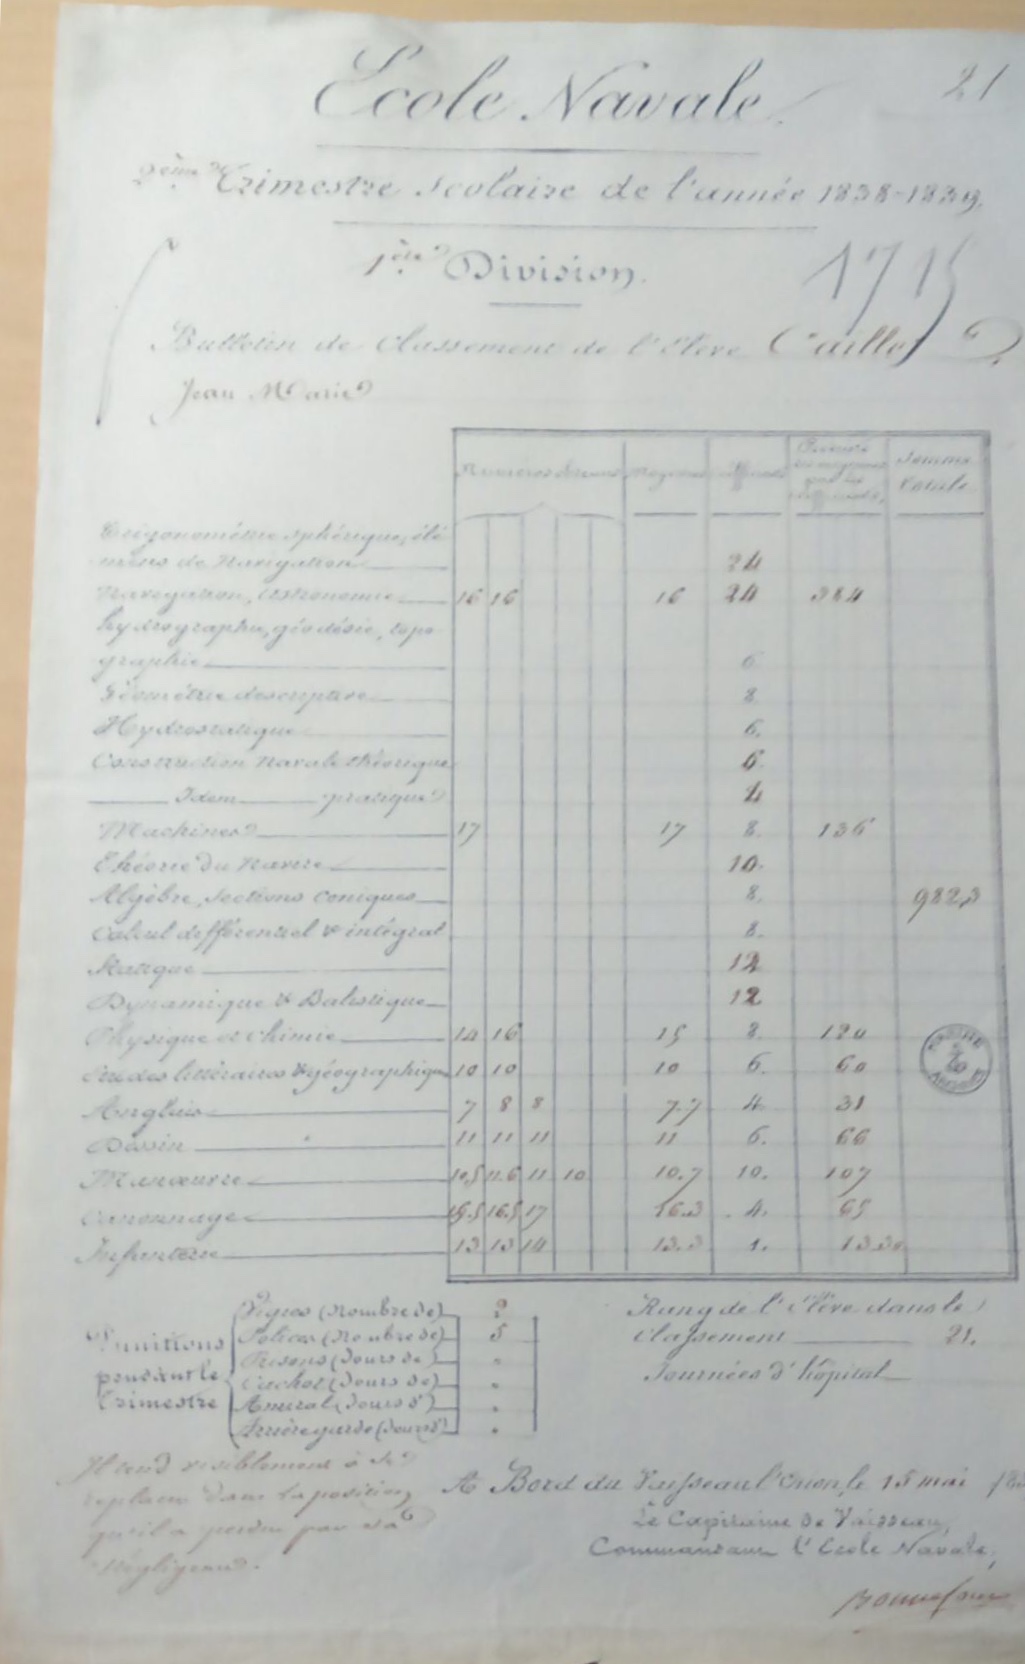 Ecole Navale 21
2ème Trimestre scolaire de l'année 1838-1839.
1ère Division.
1715
Bulletin de Classement de l'Elève Caillet
Jean Marie
Numéros Moyennes Coefficients Produits des moyennes par les coefficients Somme totale
Trigonométrie sphérique, élé
mens de Navigation 24
Navigation, Astronomie 16 16 16 24 384
hydrographie, géodésie, topo
graphie 6
Géométrie descriptive 8
Hydrostatique 6.
Construction navale théorique 6.
Idem pratique 4
Machines 17 17 8. 136
Théorie du Navire 10.
Algèbre, sections coniques 8. 982,3
Calcul différentiel & intégral 8.
Statique 12
Dynamique & Balistique 12
Physique et chimie 14 16 15 8. 120
Etudes littéraires & géographique 10 10 10 6. 60
Anglais 7 8 8 7.7 4. 31
Dessin 11 11 11 11 6. 66
Manoeuvre 10,5 11.6 11 10 10.7 10. 107
Canonnage 15.5 16.5 17 16.3 4. 65
Infanterie 13 13 14 13.3 1. 13.30
Punitions pendant le Trimestre
Piquet (Nombre de) 2
Polices (Nombre de) 5
Prisons (Jours de)
Cachot (Jours de)
Amiral (Jours d')
Arrière garde (Jours d')
Rang de l'élève dans le
classement 21.
Journées d'hôpital
Il tend visiblement à se
replacer dans la position
qu'il a perdue par sa
négligence.
A Bord du Vaisseau l'Orion, le 15 mai
Le Capitaine de Vaisseau,
Commandant l'Ecole Navale,
Bonnefoux